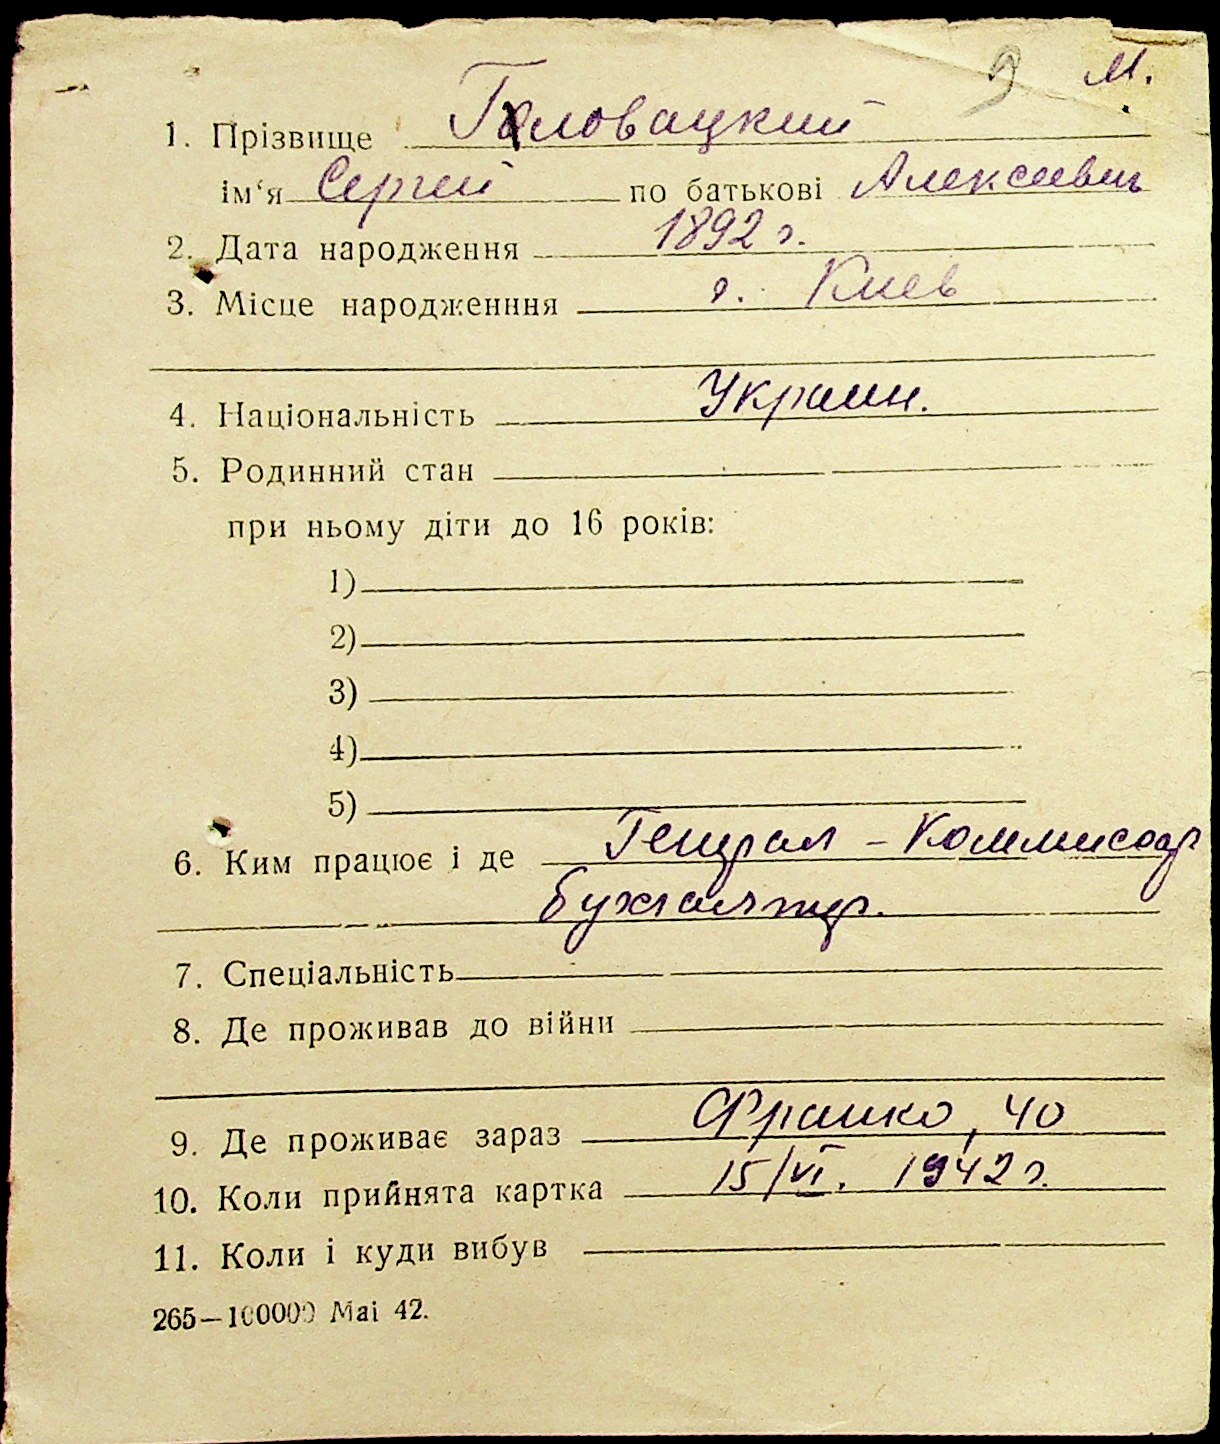 9 М.
1. Прізвище Головацкий
ім‘я Сергей по батькові Алексеевич
2. Дата народження 1892 г.
3. Місце народженння г. Киев
4. Національність Украин.
5. Родинний стан
при ньому діти до 16 років:
1)
2)
3)
4)
5)
6. Ким працює і де Генерал-Коммисар
бухгалтер.
7. Спеціальність
8. Де проживав до війни
9. Де проживає зараз Франко, 40
10. Коли прийнята картка 15/VI. 1942 г.
11. Коли і куди вибув
265—100000 Mai 42.